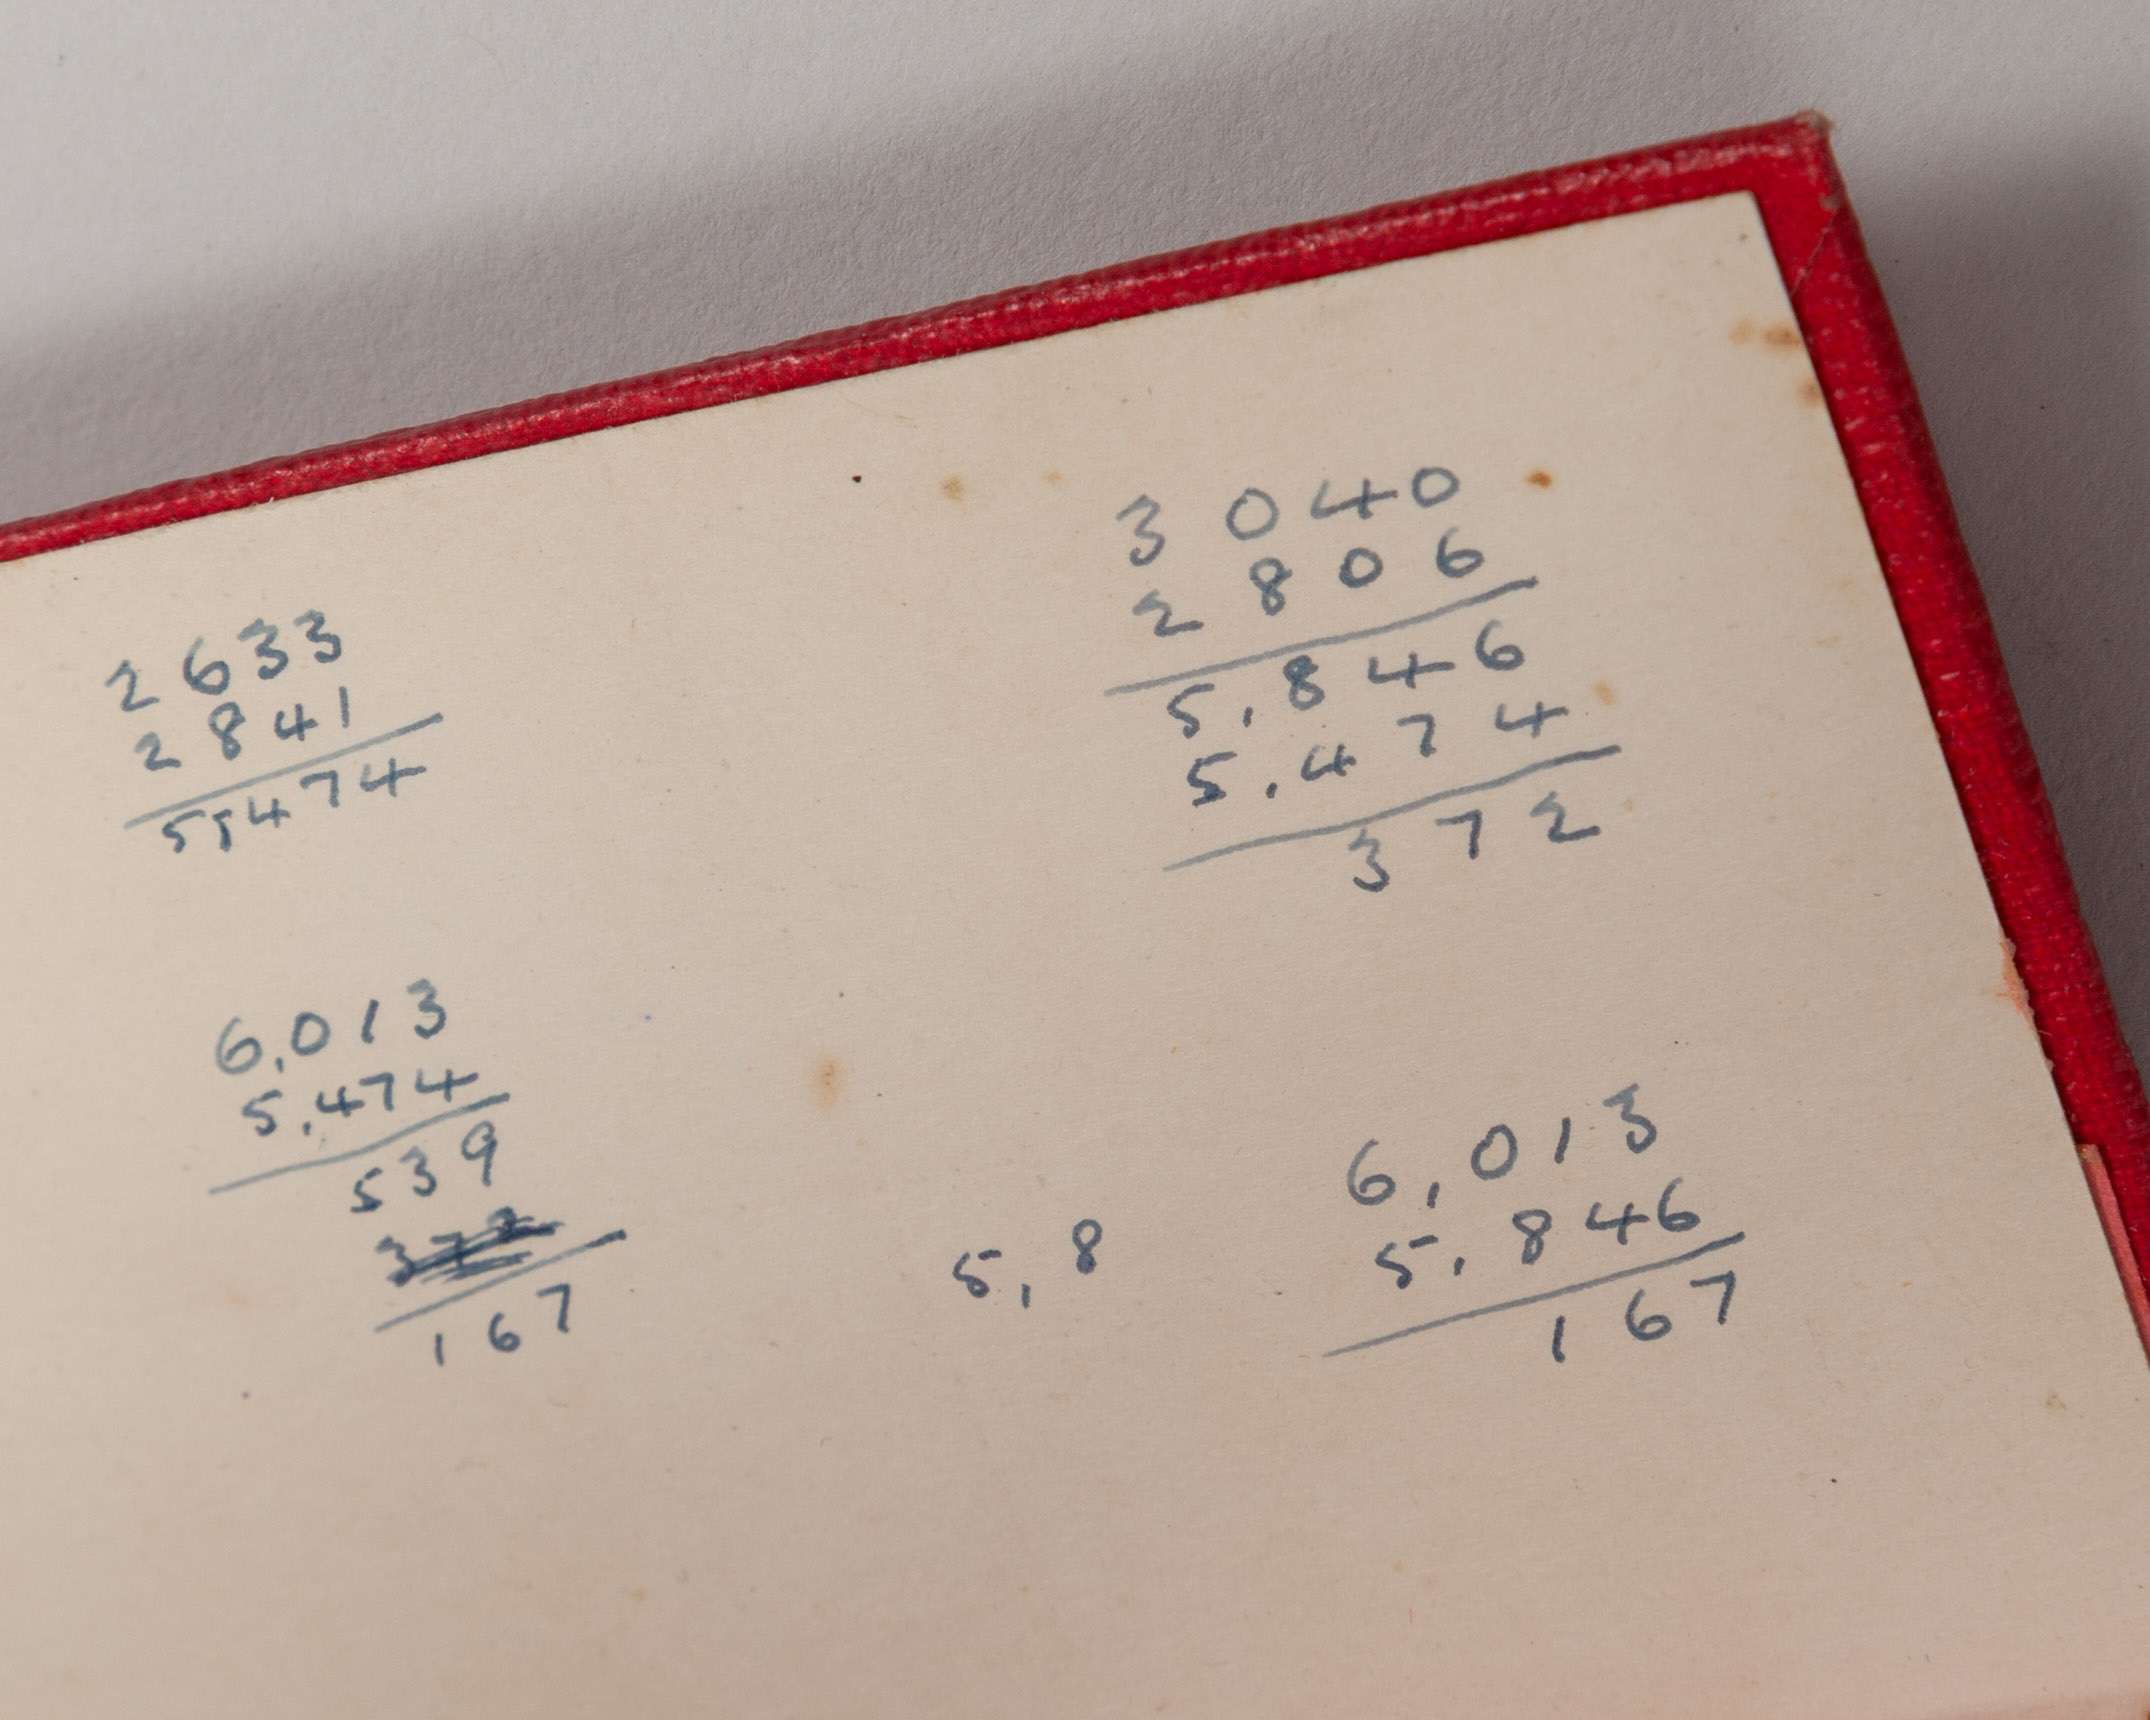 2633
2841
55474
3040
2806
5,846
5,474
372
6,013
5,474
539
372
167
5,8
6,013
5,846
167